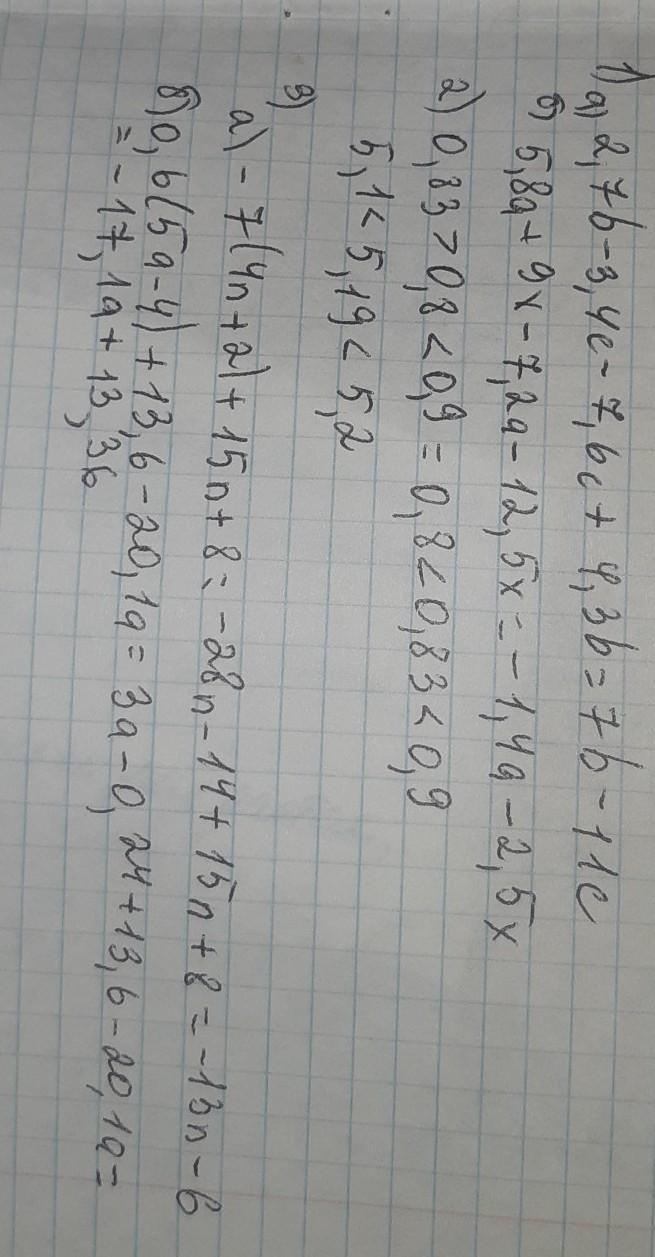 1) а) 2,7b-3,4c-7,6c+4,3b=7b-11c
б) 5,8a+9x-7,2a-12,5x=-1,4a-2,5x
2) 0,83>0,8<0,9=0,8<0,83<0,9
5,1<5,19<5,2
3)
а) -7(4n+2)+15n+8=-28n-14+15n+8=-13n-6
б) 0,6(5a-4)+13,6-20,1a=3a-0,24+13,6-20,1a=
=-17,1a+13,36